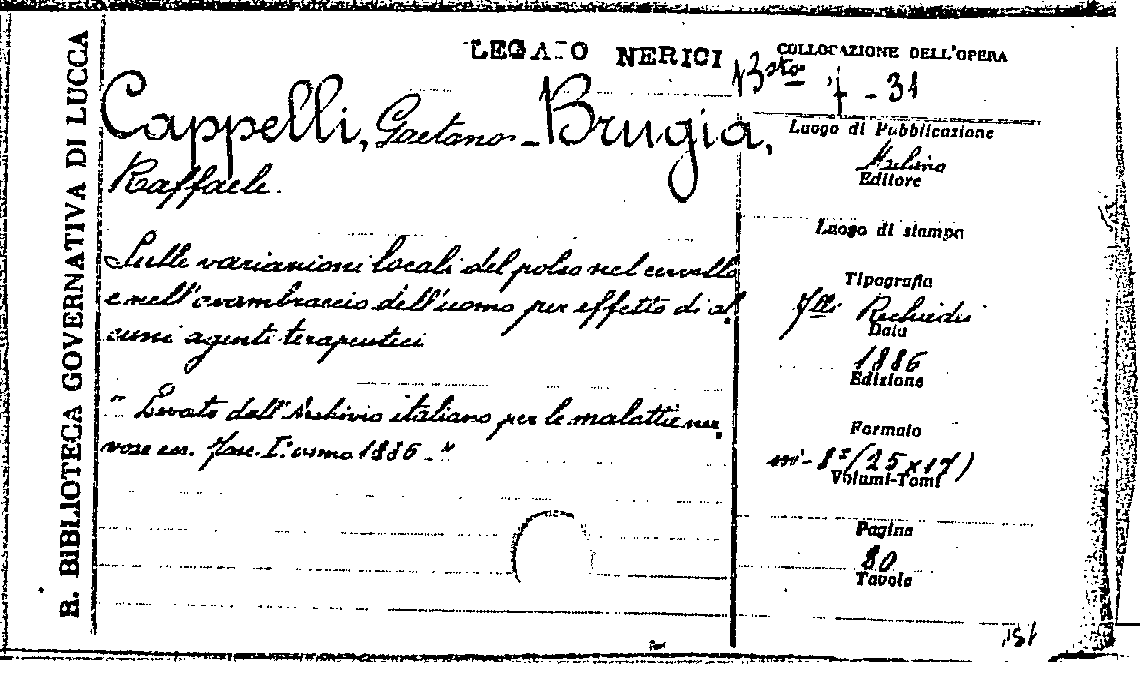 R. BIBLIOTECA GOVERNATIVA DI LUCCA
LEGATO NERICI
Cappelli, Gaetano - Brugia,
Raffaele.
Sulle variazioni locali del polso nel cervello
e nell'avambraccio dell'uomo per effetto di al
cuni agenti terapeutici
" Levato dall'Archivio italiano per le malattie ner
vose ec. fasc. I.° anno 1886 - "
COLLOCAZIONE DELL'OPERA
13sto 7 - 31
Luogo di Pubblicazione
Milano
Editore
Luogo di stampa
Tipografia
flli Rechiedei
Data
1886
Edizione
Formato
in-8° (25 x 17)
Volumi-Tomi
Pagine
80
Tavole